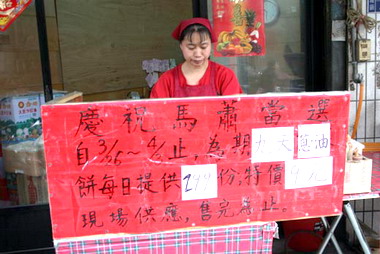 慶祝馬蕭當選
自3/26~4/3止,為期九天蔥油
餅每日提供299份,特價9元
現場供應,售完為止.